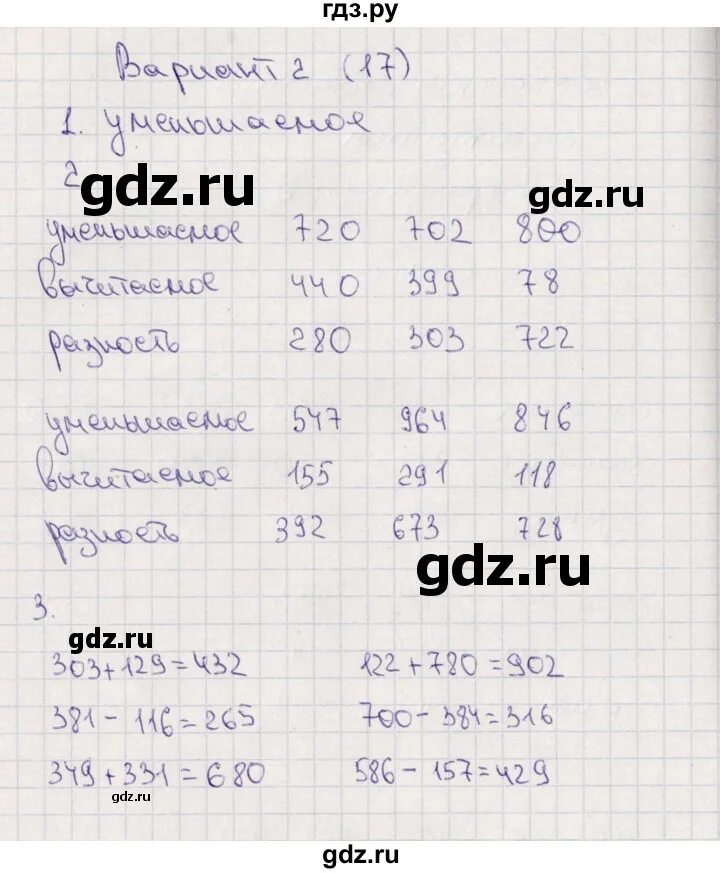 гдз.ру
Вариант 2 (17)
1. уменьшаемое
2
gdz.ru
gdz.ru
уменьшаемое 720 702 800
вычитаемое 440 399 78
разность 280 303 722
уменьшаемое 547 964 846
вычитаемое 155 291 118
разность 392 673 728
gdz.ru
3.
gdz.ru
303+129=432 122+780=902
381-116=265 700-384=316
349+331=680 586-157=429
gdz.ru
gdz.ru